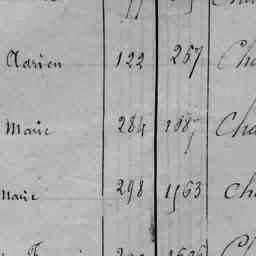 Adrien 122 267 Cha
Marie 284 1087 Cha
Marie 298 1563 Cha